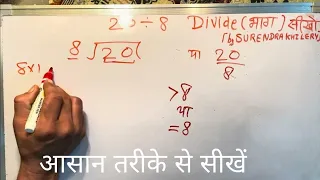 20÷8 Divide (भाग) सीखो
by SURENDRA KHILERY
8)20( या 20/8
8×1
>8
या
=8
आसान तरीके से सीखें